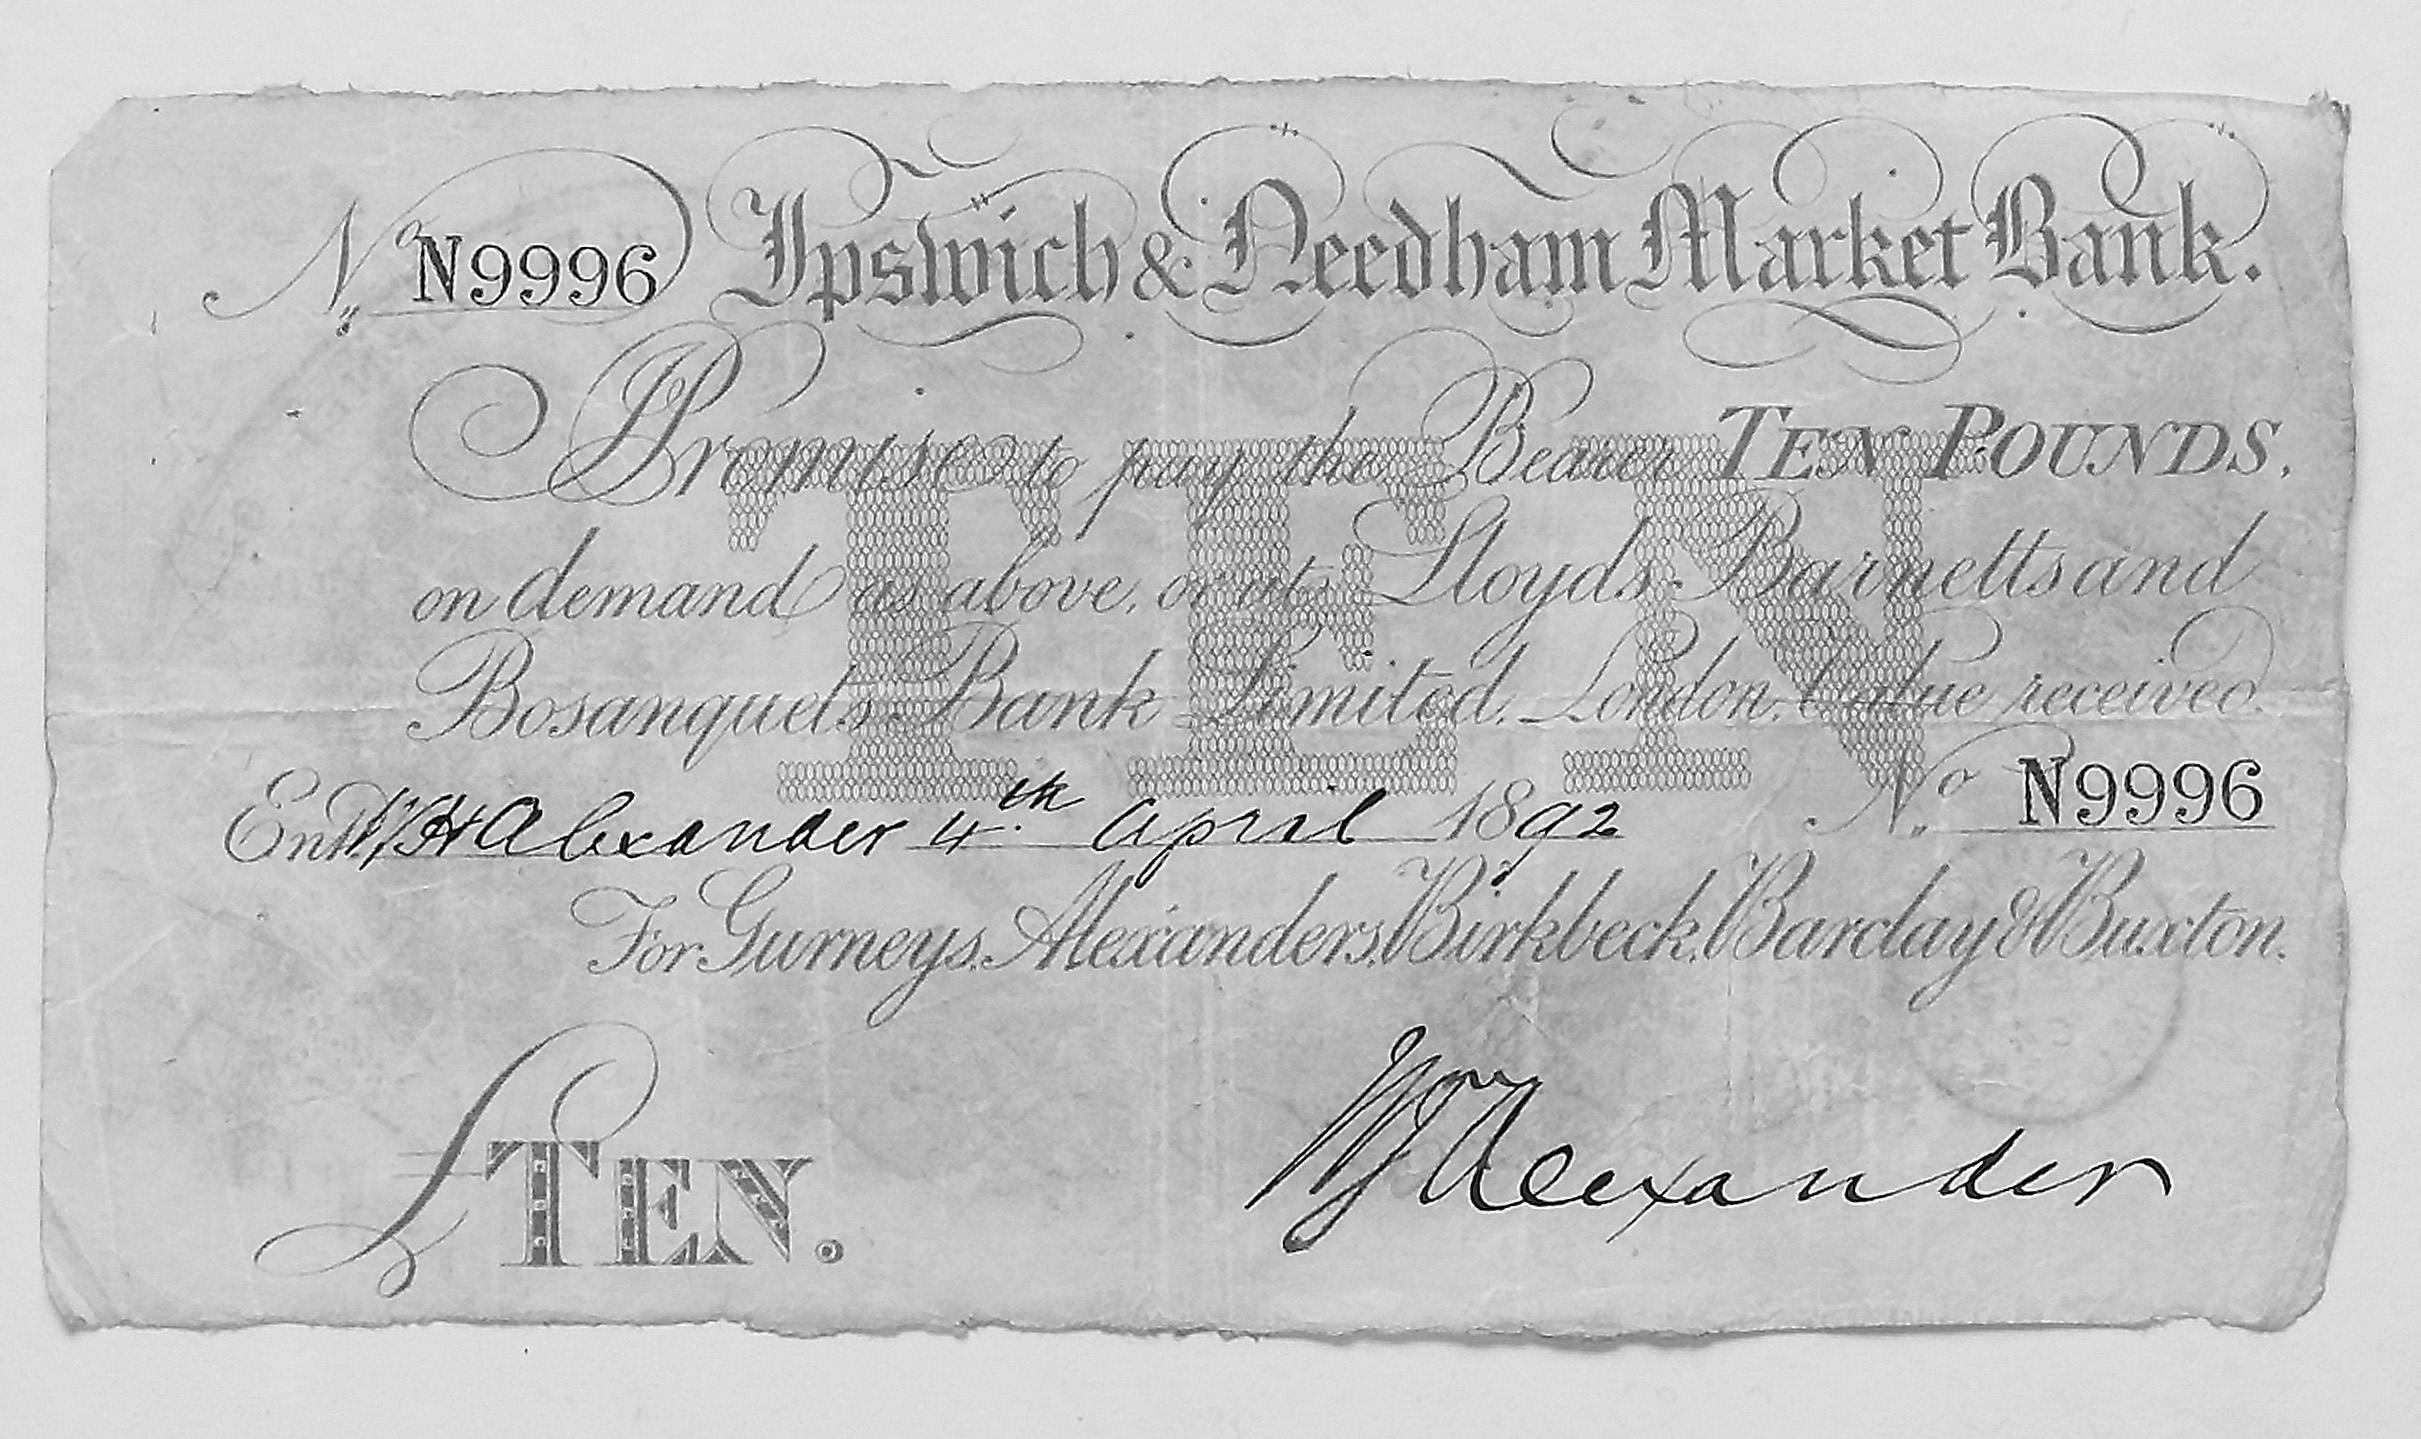 No N9996 Ipswich & Needham Market Bank.
I Promise to pay the Bearer TEN POUNDS,
on demand as above, or at Lloyds, Barnetts and
Bosanquets Bank Limited, London. Value received.
TEN
No N9996
Entd. WH Alexander 4th April 1892
For Gurneys, Alexanders, Birkbeck, Barclay & Buxton.
£TEN.
Wm Alexander